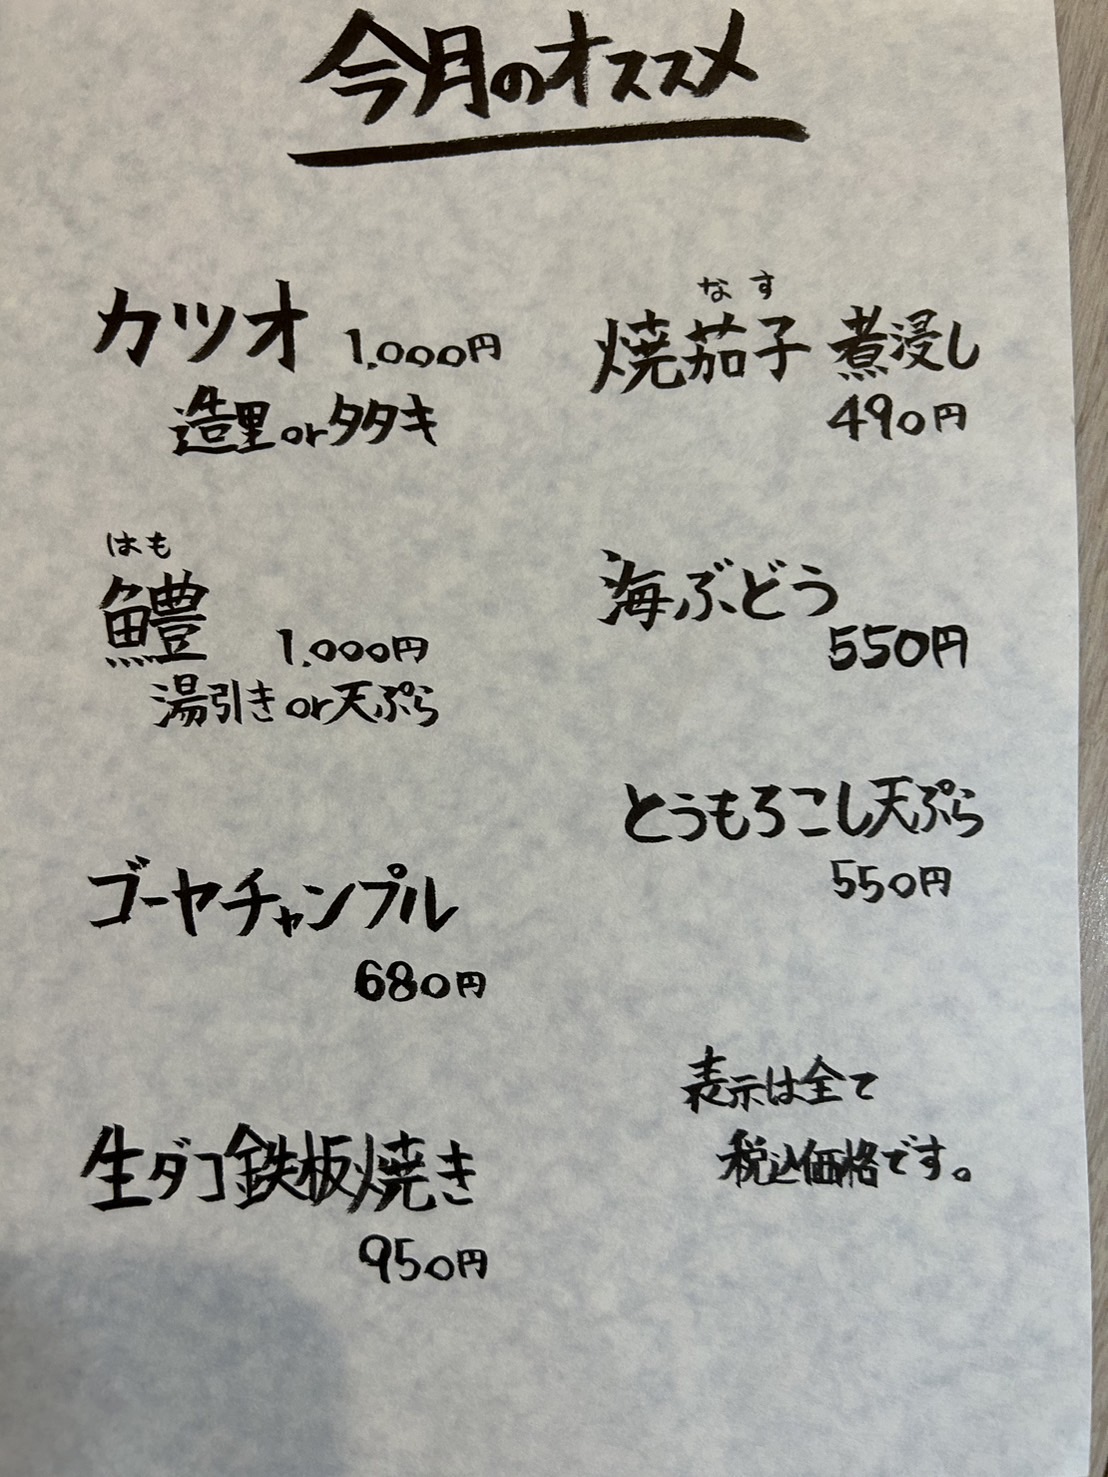 今月のオススメ
カツオ 1,000円
造里orタタキ
はも
鱧 1,000円
湯引きor天ぷら
ゴーヤチャンプル
680円
生ダコ鉄板焼き
950円
なす
焼茄子 煮浸し
490円
海ぶどう
550円
とうもろこし天ぷら
550円
表示は全て
税込価格です。